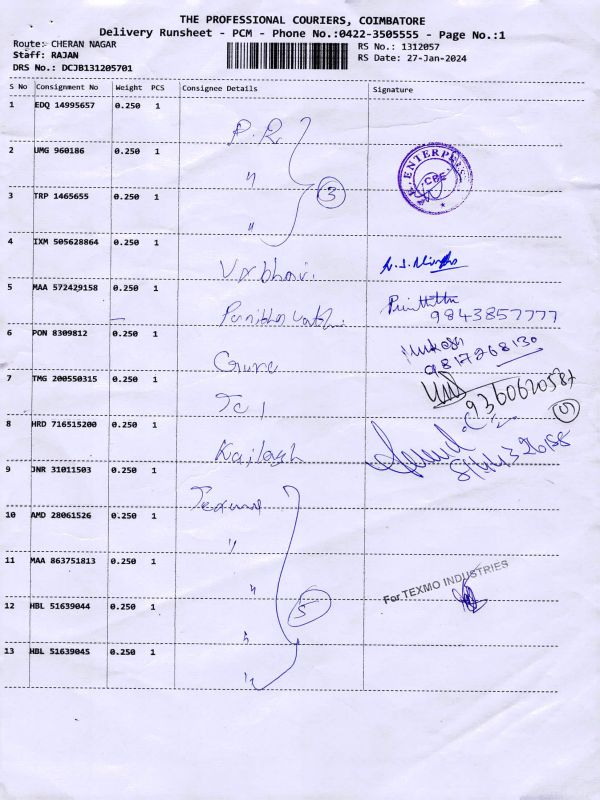 THE PROFESSIONAL COURIERS, COIMBATORE
Delivery Runsheet - PCM - Phone No.:0422-3505555 - Page No.:1
Route: CHERAN NAGAR
RS No.: 1312057
Staff: RAJAN
RS Date: 27-Jan-2024
DRS No.: DCJB131205701
S No Consignment No Weight PCS Consignee Details Signature
1 EDQ 14995657 0.250 1
P.R.
2 UMG 960186 0.250 1
" 3
ENTERPRISES CBE
3 TRP 1465655 0.250 1
"
4 IXM 505628864 0.250 1
Vaibhavi.
5 MAA 572429158 0.250 1
9843857777
6 PON 8309812 0.250 1
Guru
Mukesh
9817268130
7 TMG 200550315 0.250 1
TCI
9360620587
8 HRD 716515200 0.250 1
Kailash
9 JNR 31011503 0.250 1
Texmo
10 AMD 28061526 0.250 1
"
11 MAA 863751813 0.250 1
"
For TEXMO INDUSTRIES
12 HBL 51639044 0.250 1
" 5
13 HBL 51639045 0.250 1
"